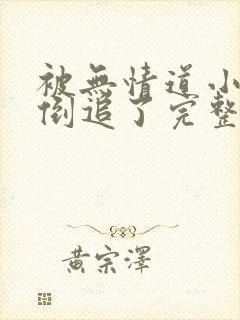 被無情道小
倒追了完整
黃宗澤